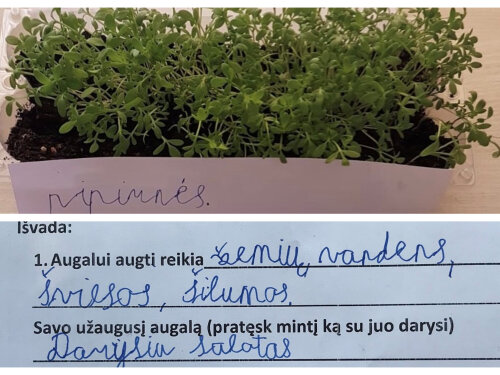 pipirnės.
Išvada:
1. Augalui augti reikia žemių, vandens,
šviesos, šilumos.
Savo užaugusį augalą (pratęsk mintį ką su juo darysi)
Darysiu salotas